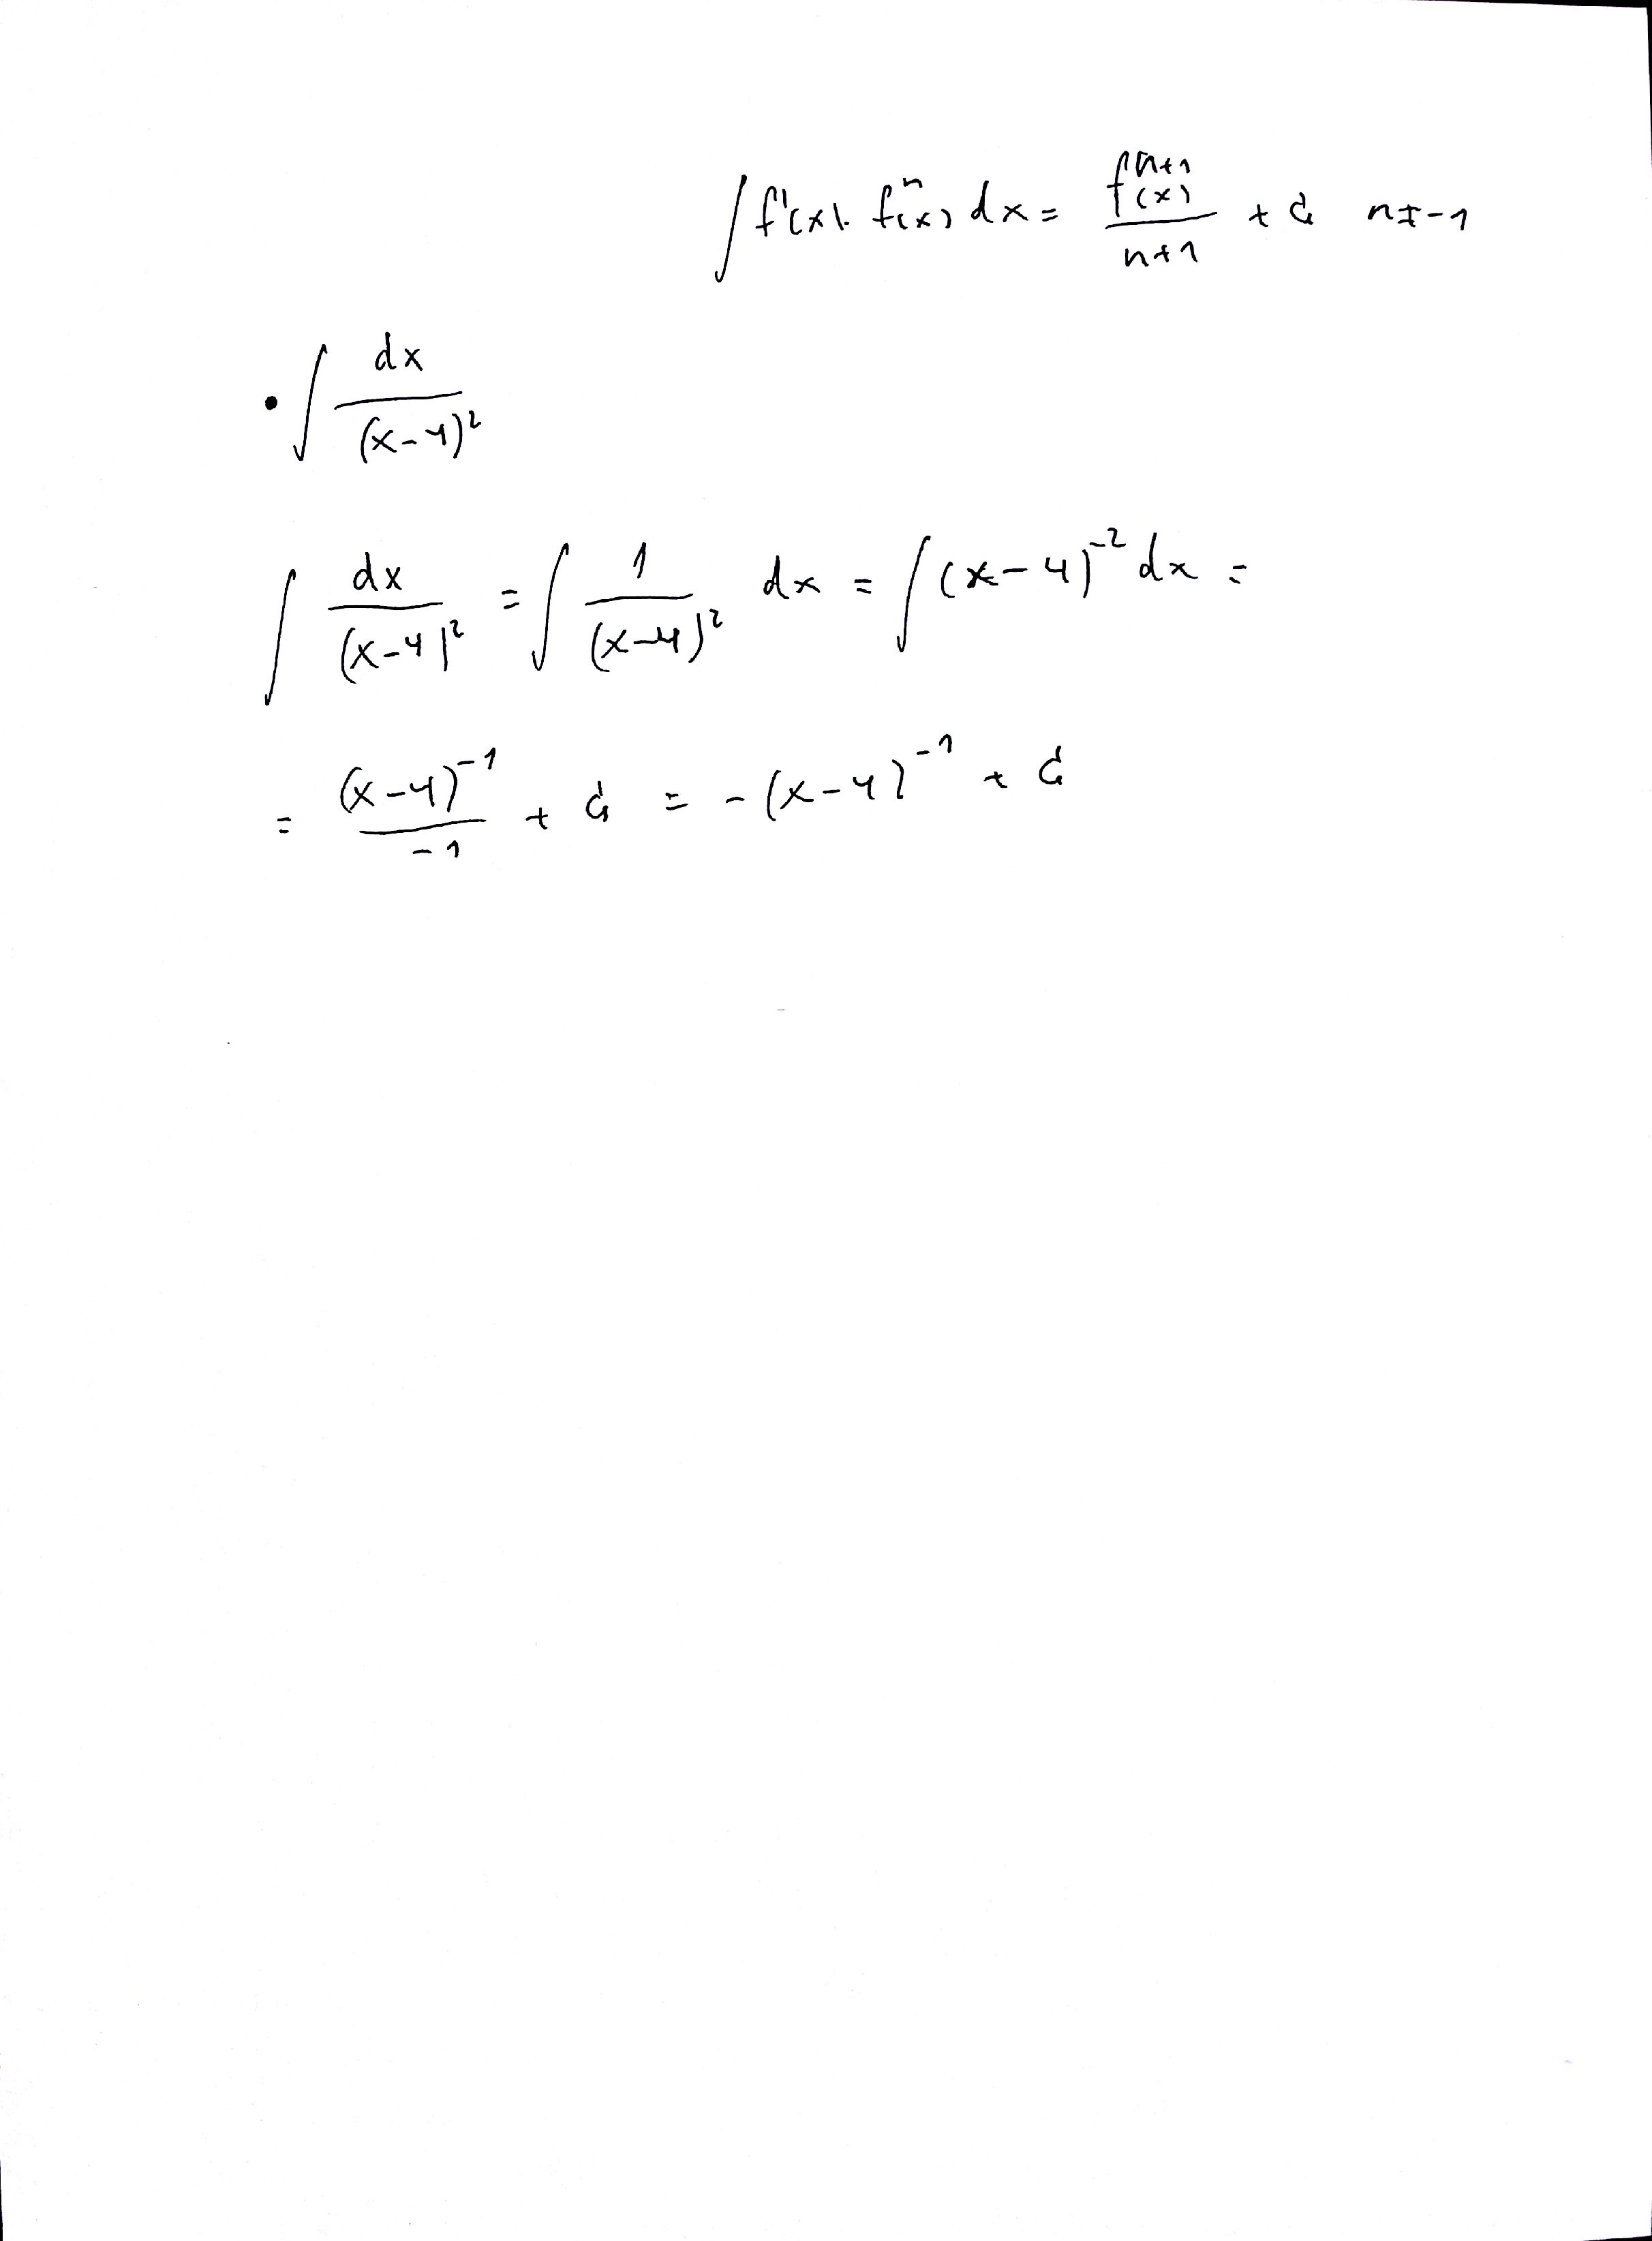 ∫ f'(x). fⁿ(x) dx = fⁿ⁺¹(x) / n+1 + C n ≠ -1
• ∫ dx / (x-4)²
∫ dx / (x-4)² = ∫ 1 / (x-4)² dx = ∫ (x-4)⁻² dx =
= (x-4)⁻¹ / -1 + C = - (x-4)⁻¹ + C